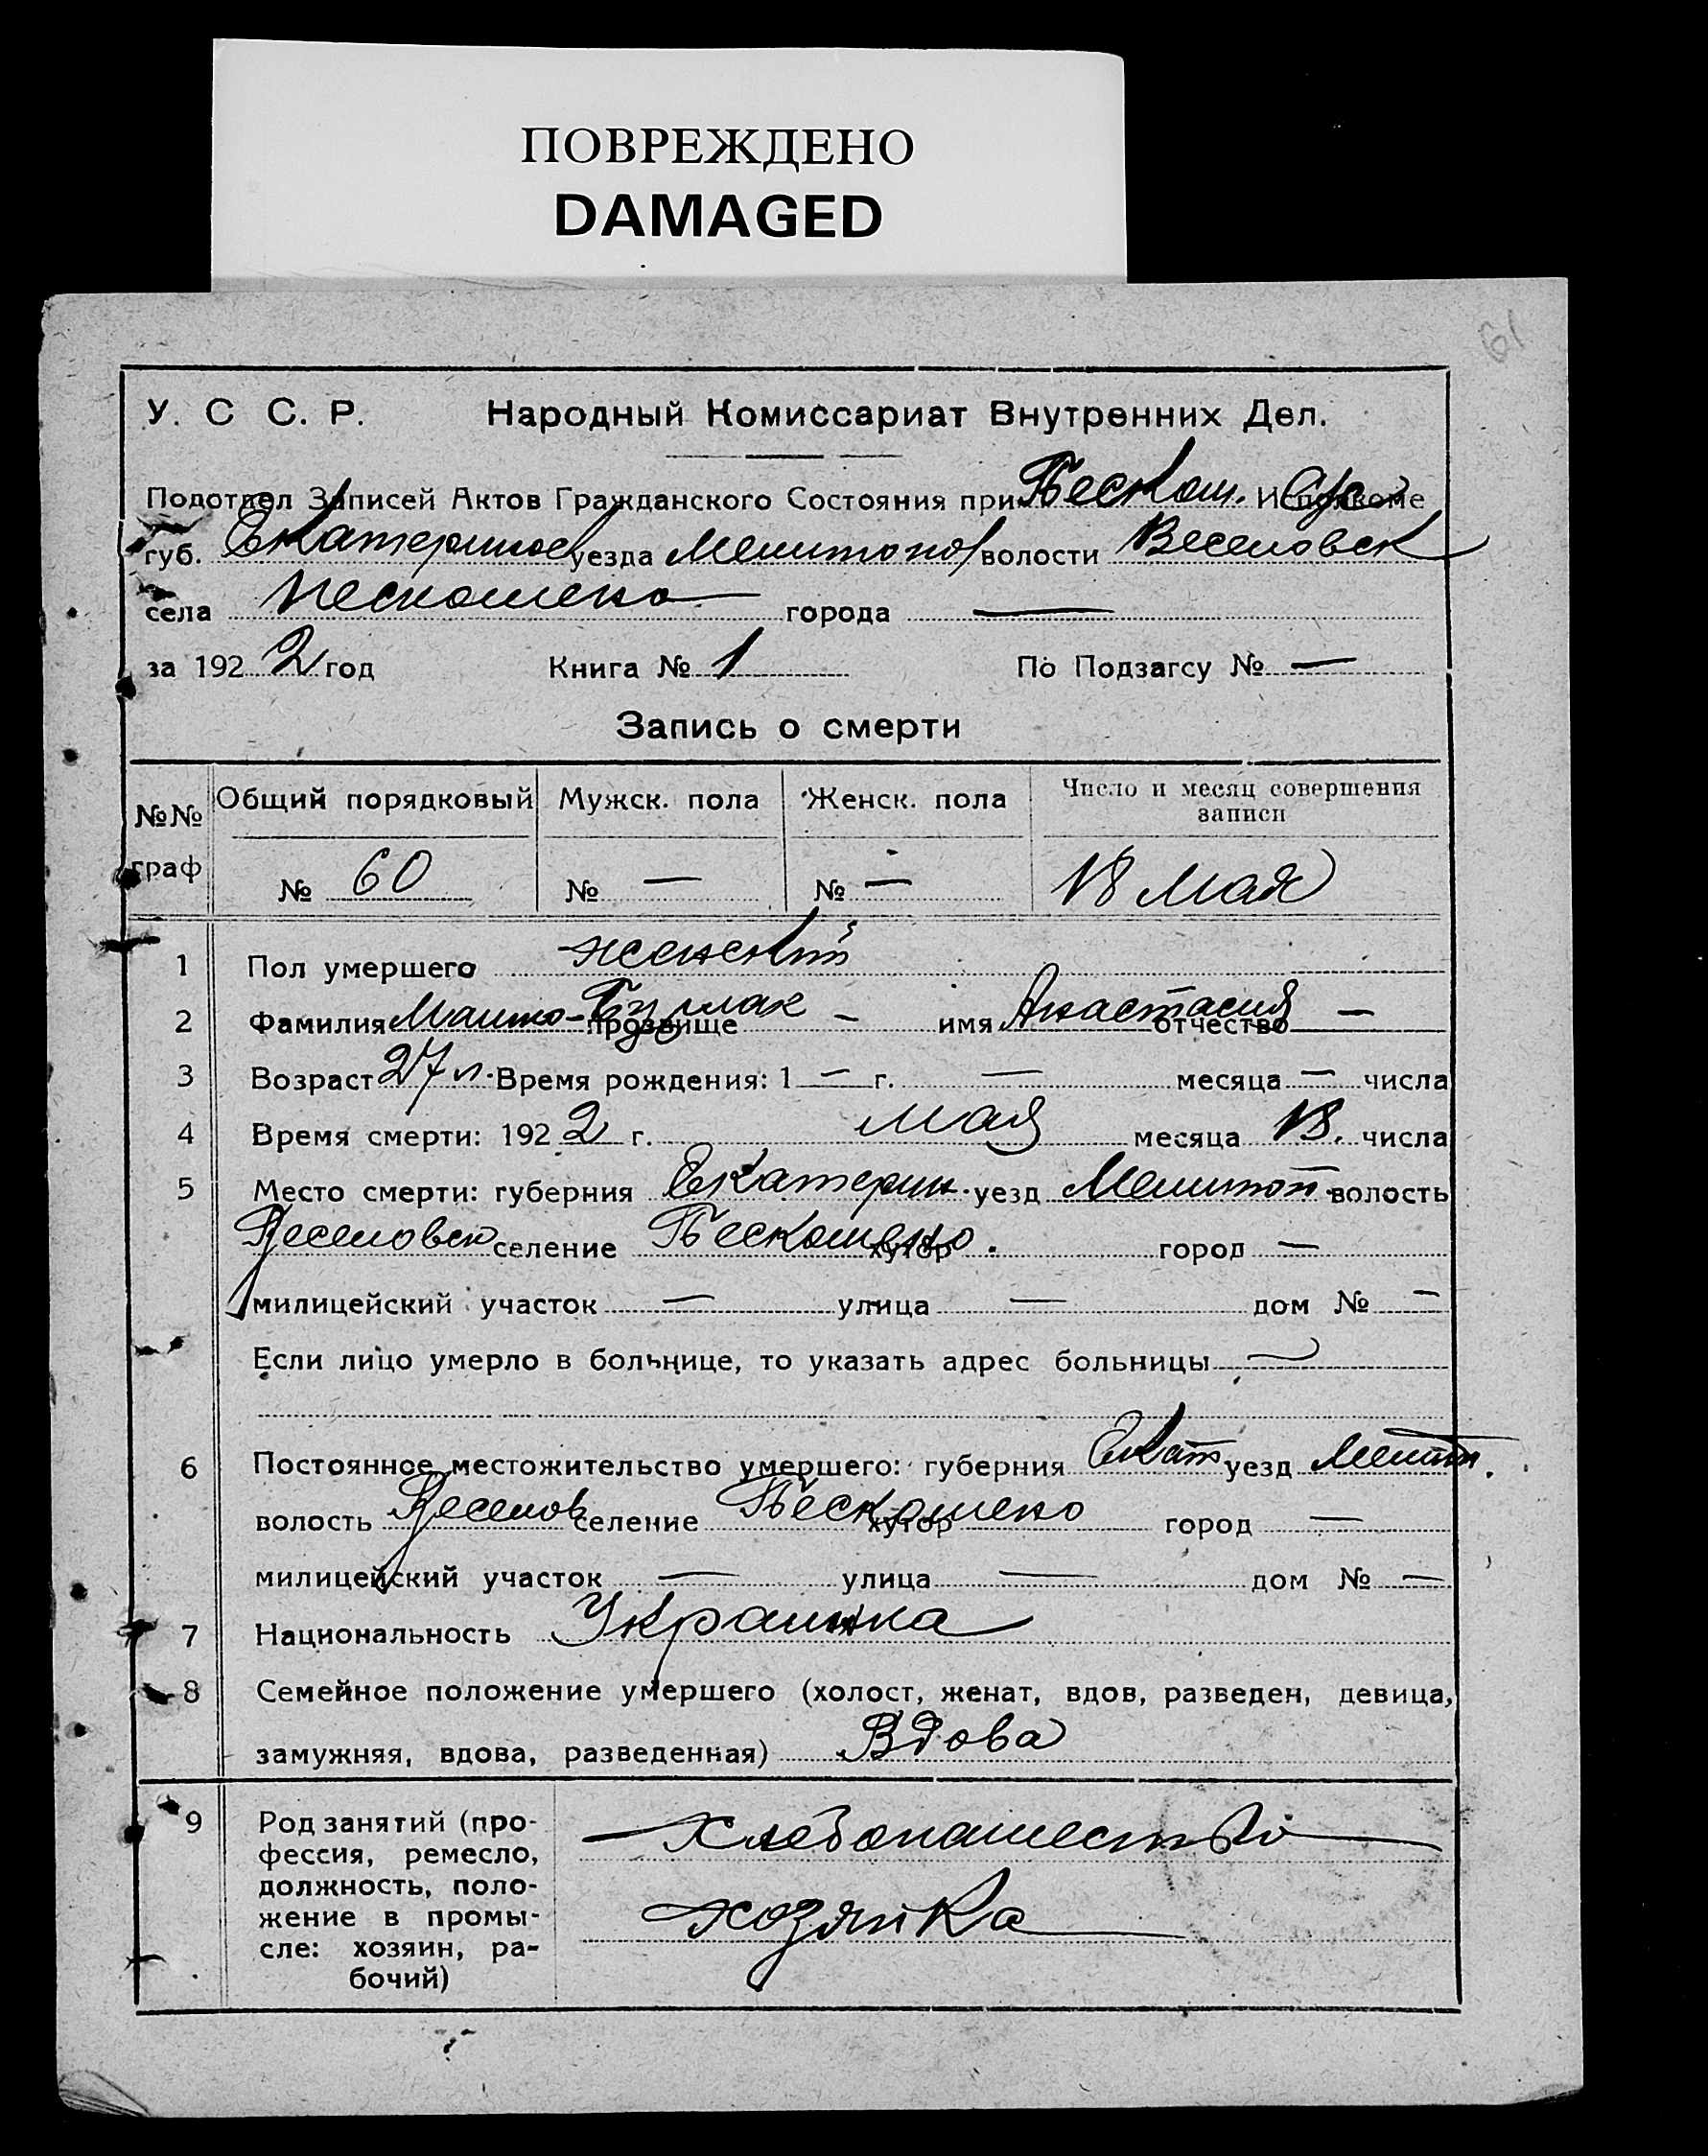 ПОВРЕЖДЕНО
DAMAGED
61
У. С С. Р. Народный Комиссариат Внутренних Дел.
Подотдел Записей Актов Гражданского Состояния при Бескош. Исполкоме
губ. Екатеринос уезда Мелитопол волости Веселовск
села Пескошено города —
за 1922 год Книга № 1 По Подзагсу № —
Запись о смерти
№№ граф Общий порядковый Мужск. пола Женск. пола Число и месяц совершения записи
№ 60 № — № — 18 Мая
1 Пол умершего женский
2 Фамилия прозвище — имя Анастасия отчество —
3 Возраст 27 л. Время рождения: 1 — г. — месяца — числа
4 Время смерти: 1922 г. мая месяца 18. числа
5 Место смерти: губерния Екатерин. уезд Мелитоп. волость
Веселовск селение Бескошено. хутор город —
милицейский участок — улица — дом № —
Если лицо умерло в больнице, то указать адрес больницы —
6 Постоянное местожительство умершего: губерния Екат уезд Мелит.
волость Веселов селение Бескошено хутор город —
милицейский участок — улица — дом № —
7 Национальность Украинка
8 Семейное положение умершего (холост, женат, вдов, разведен, девица,
замужняя, вдова, разведенная) Вдова
9 Род занятий (про-
фессия, ремесло,
должность, поло-
жение в промы-
сле: хозяин, ра-
бочий)
Хлебопашество
хозяйка